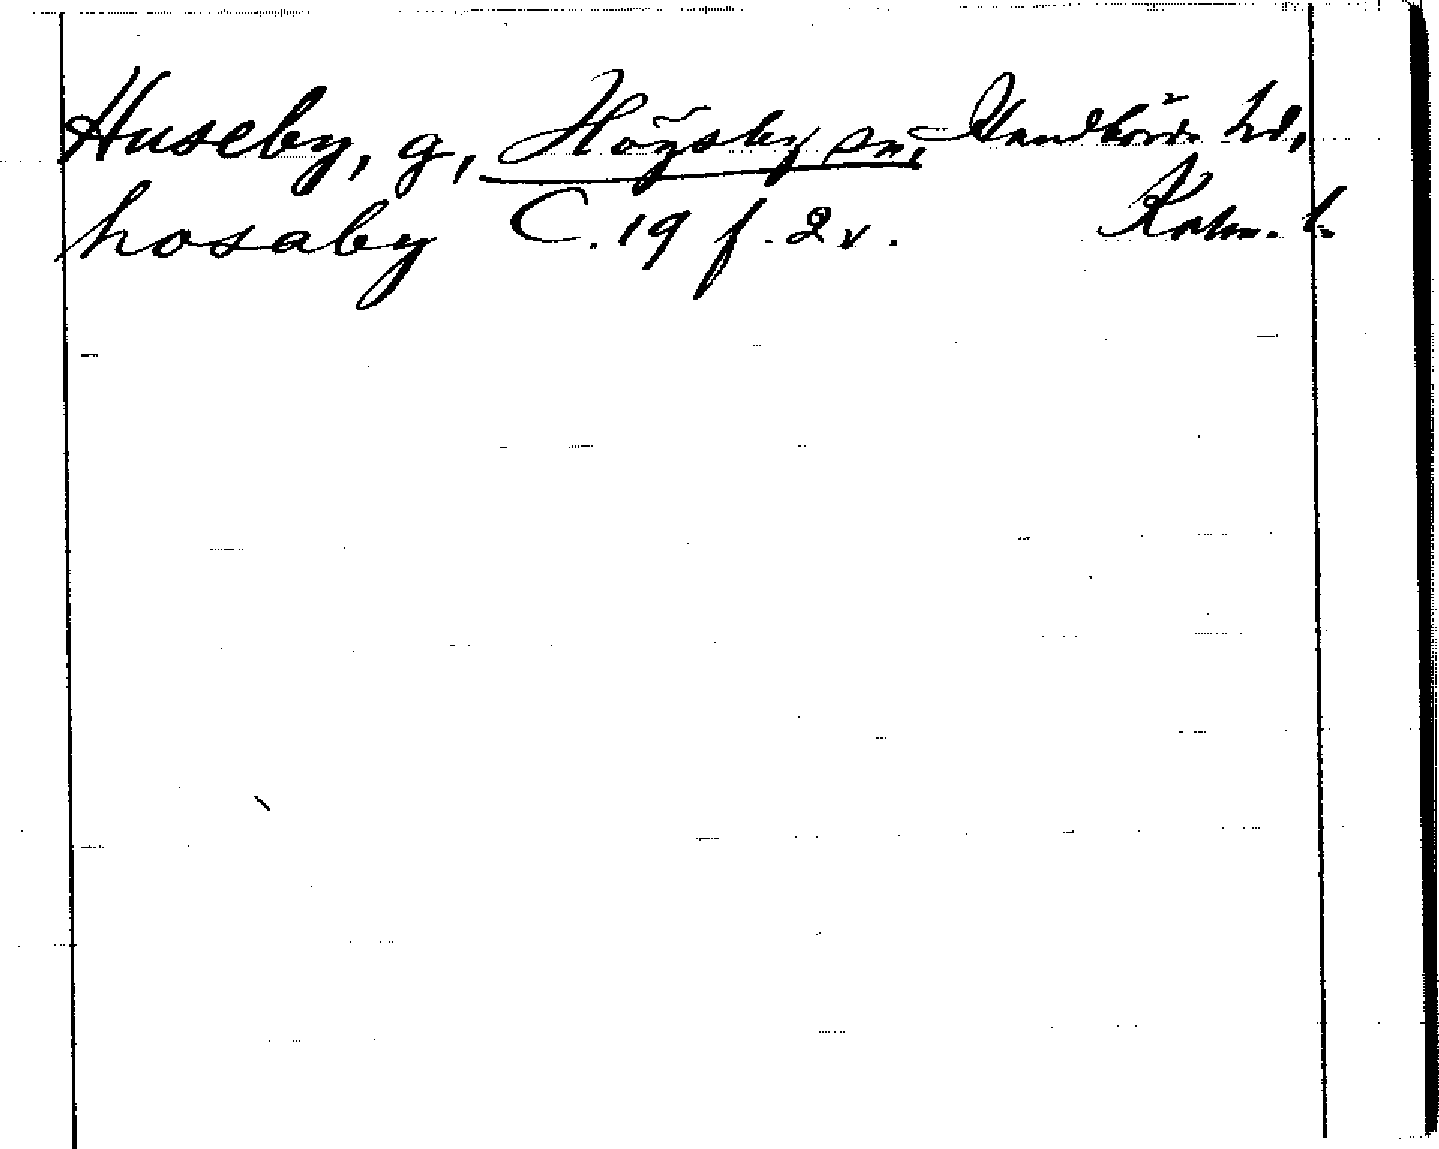 Huseby, g, Högsby sn, Handbörds hd,
hosaby C. 19 f. 2 v. Kalm. l.